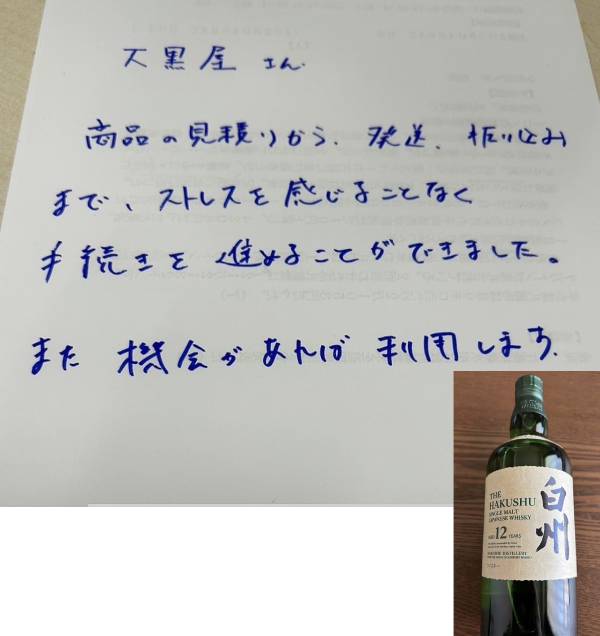 大黒屋さん
商品の見積りから、発送、振り込み
まで、ストレスを感じることなく
手続きを進めることができました。
また機会があれば利用します。
THE
HAKUSHU
SINGLE MALT
JAPANESE WHISKY
AGED 12 YEARS
白州